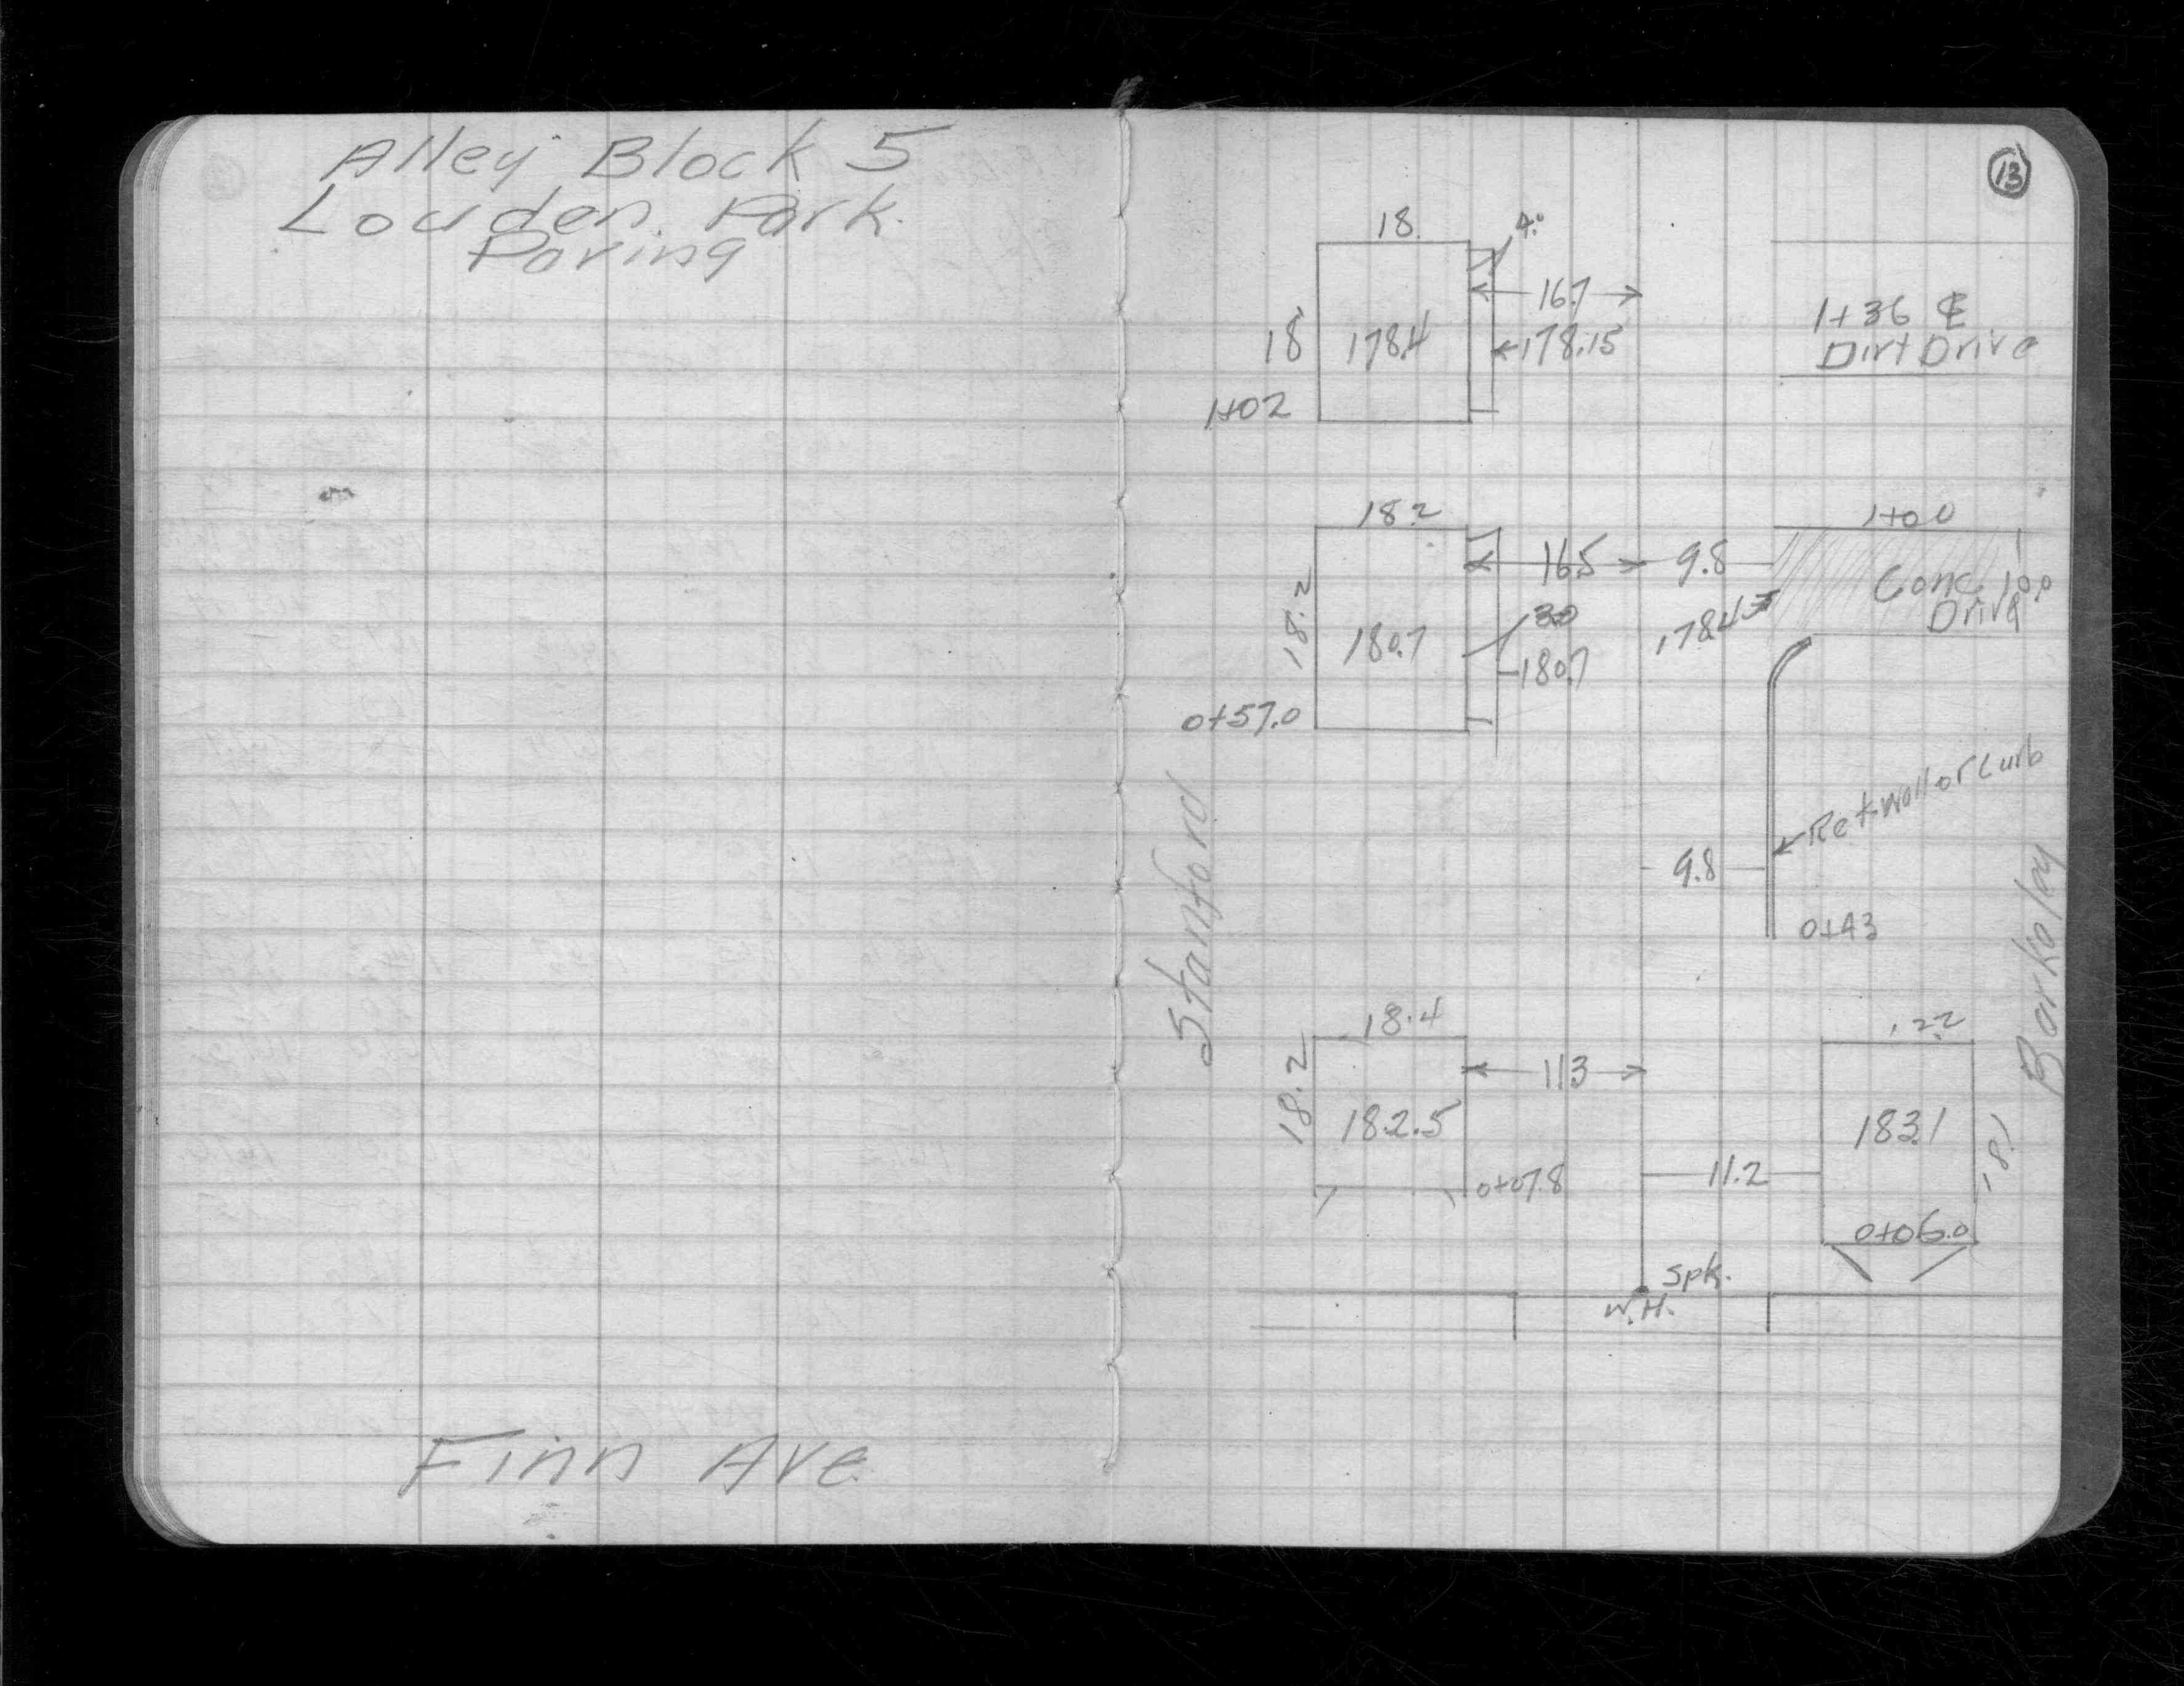 Alley Block 5
Louden Park.
Paving
Finn Ave
13
18.
4.0
16.7
18
178.4
178.15
1+02
1+36 ℄
Dirt Drive
18.2
1+00
16.5
9.8
18.2
Conc.
Drive
10.0
3.0
178.4
180.7
180.7
0+57.0
Stanford
Ret Wall or Curb
9.8
0+43
Barkolay
18.4
11.3
18.2
182.5
183.1
18.1
0+07.8
11.2
0+06.0
Spk.
W.H.